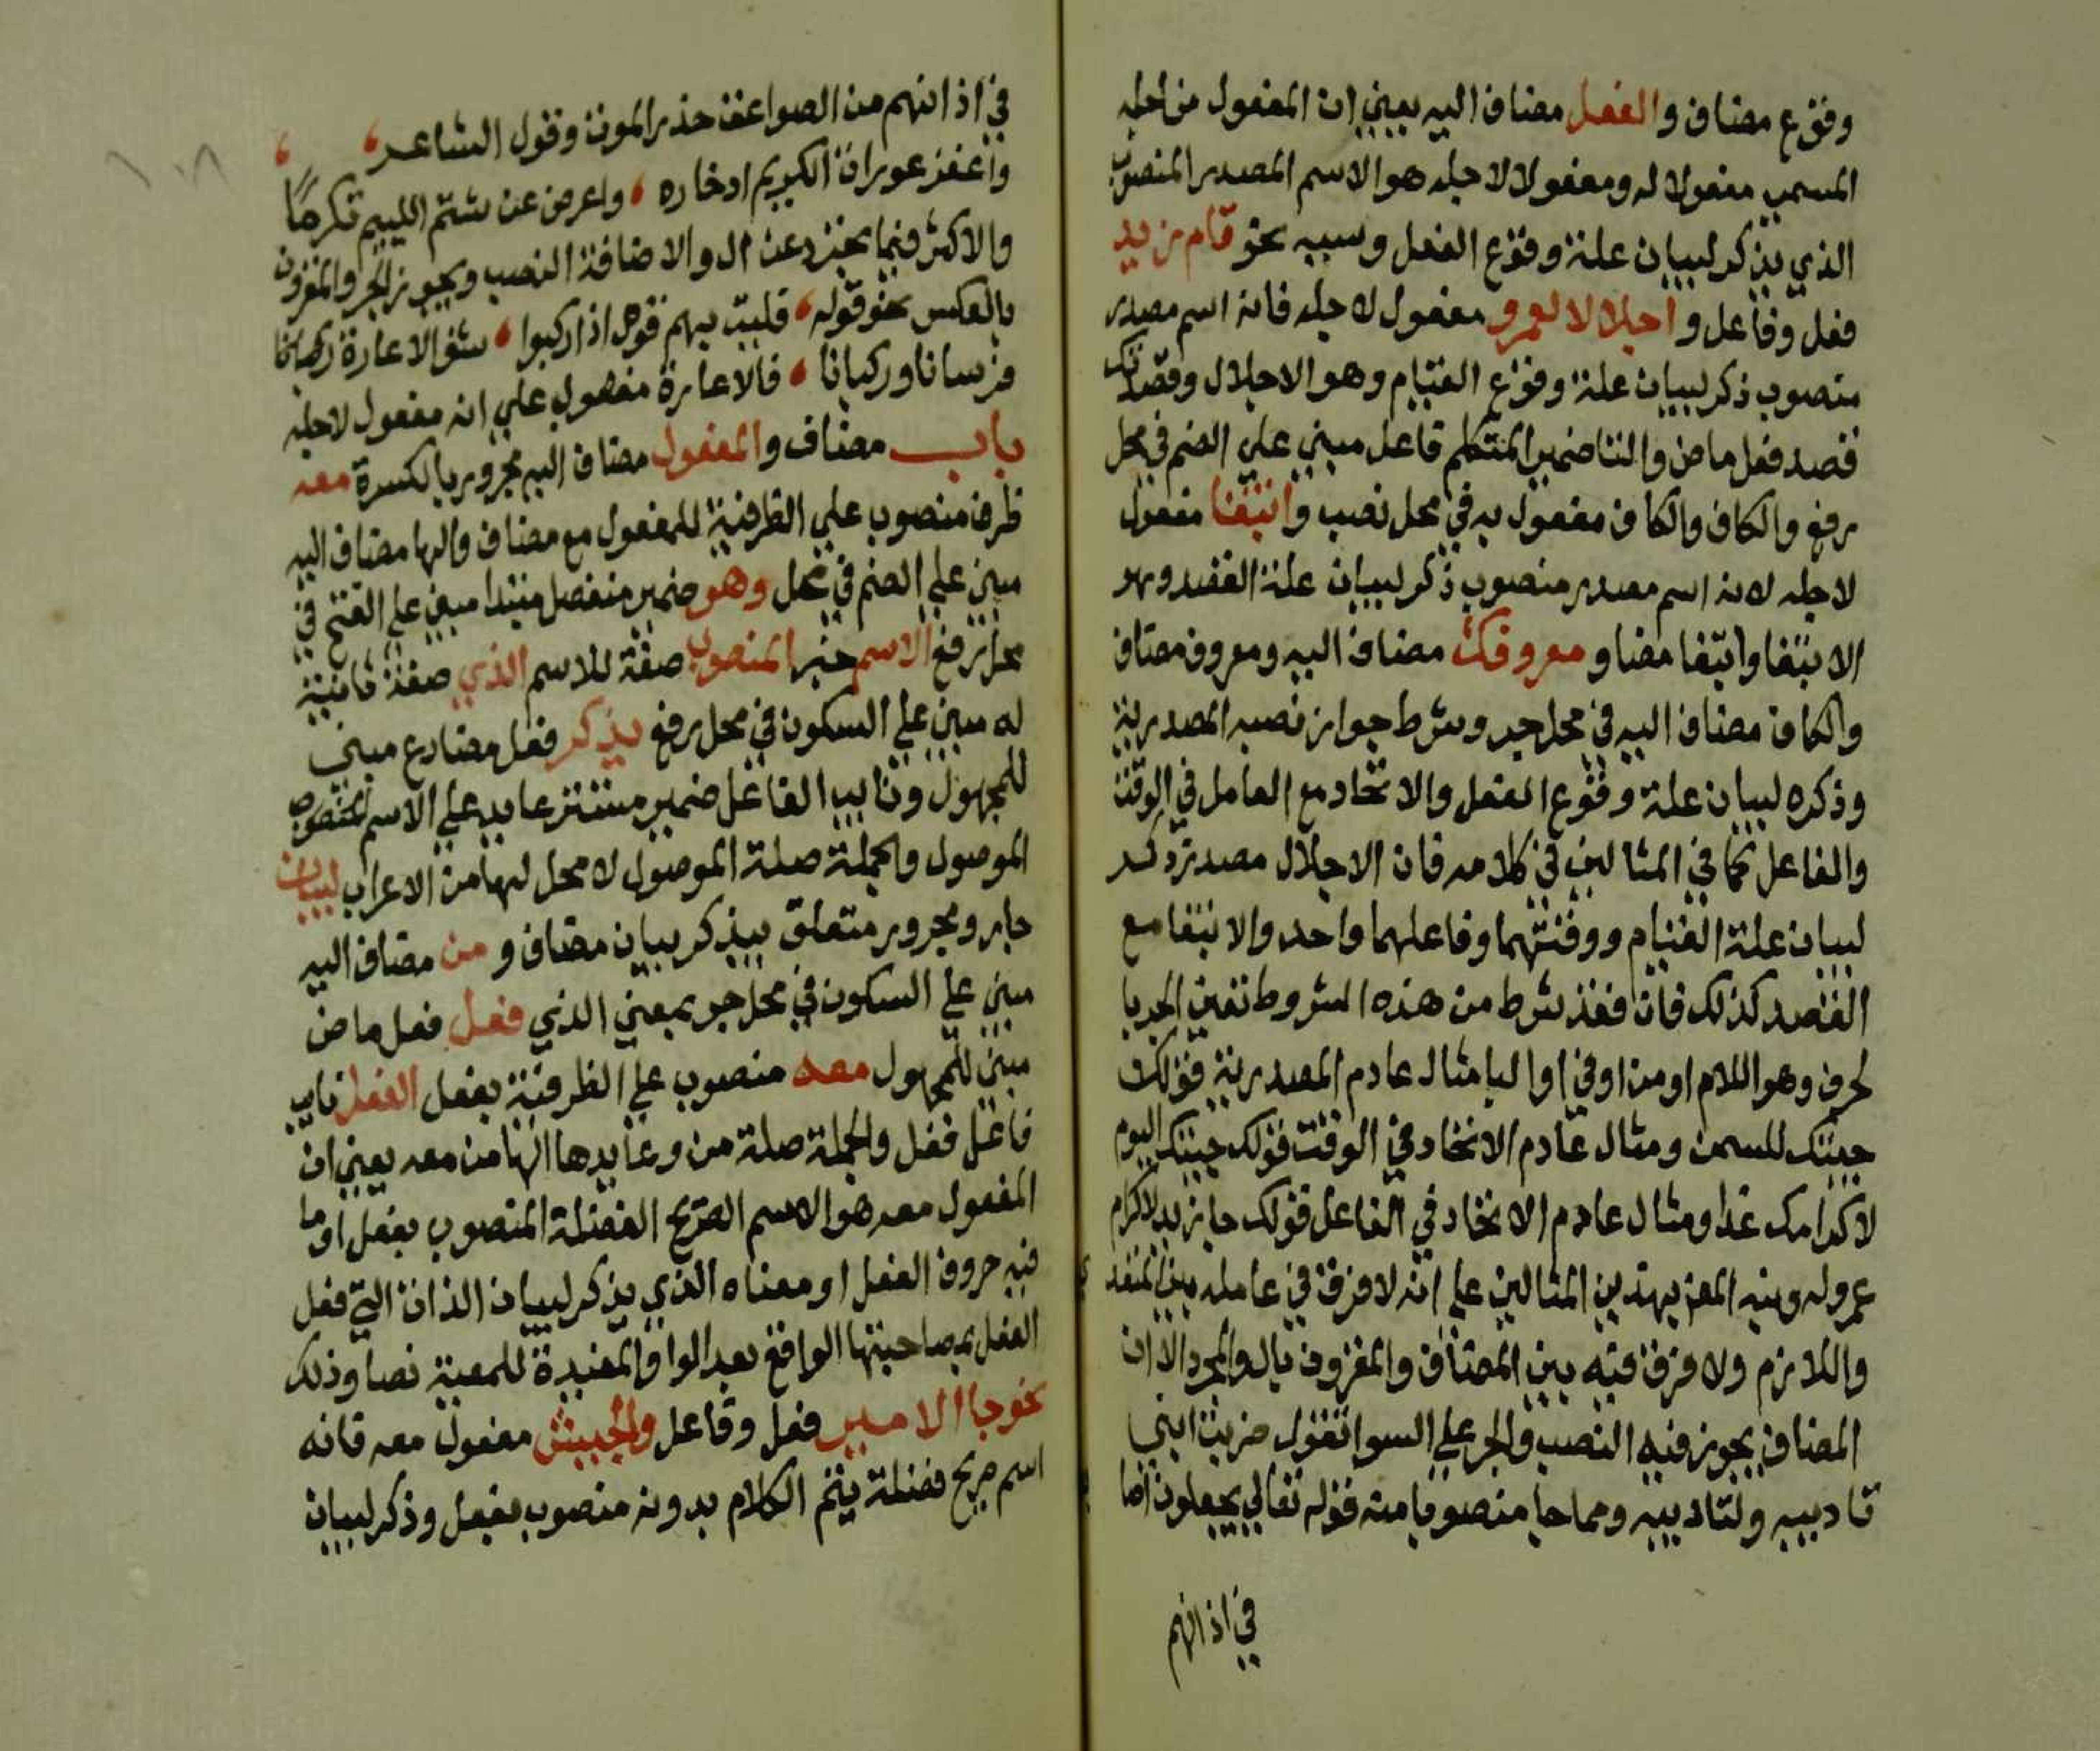 وقوع مضاف والفعل مضاف اليه يعني ان المفعول من اجله
المسمى مفعولا له ومفعولا لاجله هو الاسم المصدر المنصوب
الذي يذكر لبيان علة وقوع الفعل وسببه نحو قام زيد
فعل وفاعل واجلالا لعمرو مفعول لاجله فانه اسم مصدر
منصوب ذكر لبيان علة وقوع القيام وهو الاجلال وقصدتك
فقصد فعل ماض والتا ضمير المتكلم فاعل مبني علي الضم في محل
رفع والكاف والكاف مفعول به في محل نصب وابتغا مفعول
لاجله لانه اسم مصدر منصوب ذكر لبيان علة القصد وهو
الابتغا وابتغا مضا و معروفك مضاف اليه ومعروف مضاف
والكاف مضاف اليه في محل جر وشرط جواز نصبه المصدرية
وذكره لبيان علة وقوع الفعل والاتحاد مع العامل في الوقت
والفاعل كما في المثالين في كلامه فان الاجلال مصدر ذكر
لبيان علة القيام ووقتهما وفاعلهما واحد والابتغا مع
القصد كذلك فان فقد شرط من هذه الشروط تعين الجر با
لحرف وهو اللام او من او في او البا مثال عادم المصدرية قولك
جيتك للسمن ومثال عادم الاتحاد في الوقت قولك جيتك اليوم
لاكرامك غدا ومثال عادم الاتحاد في الفاعل قولك جا زيد لاكرام
عمرو له ونبه المص بهذين المثالين علي انه لا فرق في عامله بين المتعد
واللازم ولا فرق فيه بين المضاف والمقرون بال والمجرد الا ان
المضاف يجوز فيه النصب والجر علي السوا تقول ضربت ابني
تاديبه ولتاديبه ومما جا منصوبا منه قوله تعالي يجعلون اصا
في اذانهم
في اذانهم من الصواعق حذر الموت وقول الشاعر
واغفر عوراة الكريم ادخاره ، واعرض عن شتم الليم تكرما
والاكثر فيما تجرد عن ال والاضافة النصب ويجوز الجر والمقرون
بالعكس نحو قوله ، فليت بهم قوما اذا ركبوا ، شنوا الاغارة ركبانا
فرسانا وركبانا ، فالاغارة مفعول علي انه مفعول لاجله
باب مضاف والمفعول مضاف اليه مجرور بالكسرة معه
ظرف منصوب علي الظرفية للمفعول مع مضاف والها مضاف اليه
مبني علي الضم في محل وهو ضمير منفصل مبتدا مبني علي الفتح في
محل رفع الاسم خبر المنصوب صفة للاسم الذي صفة ثانية
له مبني علي السكون في محل رفع يذكر فعل مضارع مبني
للمجهول ونايب الفاعل ضمير مستتر عايد علي الاسم المنصوب
الموصول والجملة صلة الموصول لا محل لها من الاعراب لبيان
جار ومجرور متعلق بيذكر بيان مضاف و من مضاف اليه
مبني علي السكون في محل جر بمعني الذي فعل فعل ماض
مبني للمجهول معه منصوب علي الظرفية بفعل الفعل نايب
فاعل فعل والجملة صلة من وعايدها الها من معه يعني ان
المفعول معه هو الاسم الصريح الفضلة المنصوب بفعل او ما
فيه حروف الفعل او معناه الذي يذكر لبيان الذات التي فعل
الفعل بمصاحبتها الواقع بعد الواو المفيدة للمعية نصا وذلك
نحو جا الامير فعل وفاعل والجيش مفعول معه فانه
اسم صريح فضلة يتم الكلام بدونه منصوب بفعل وذكر لبيان